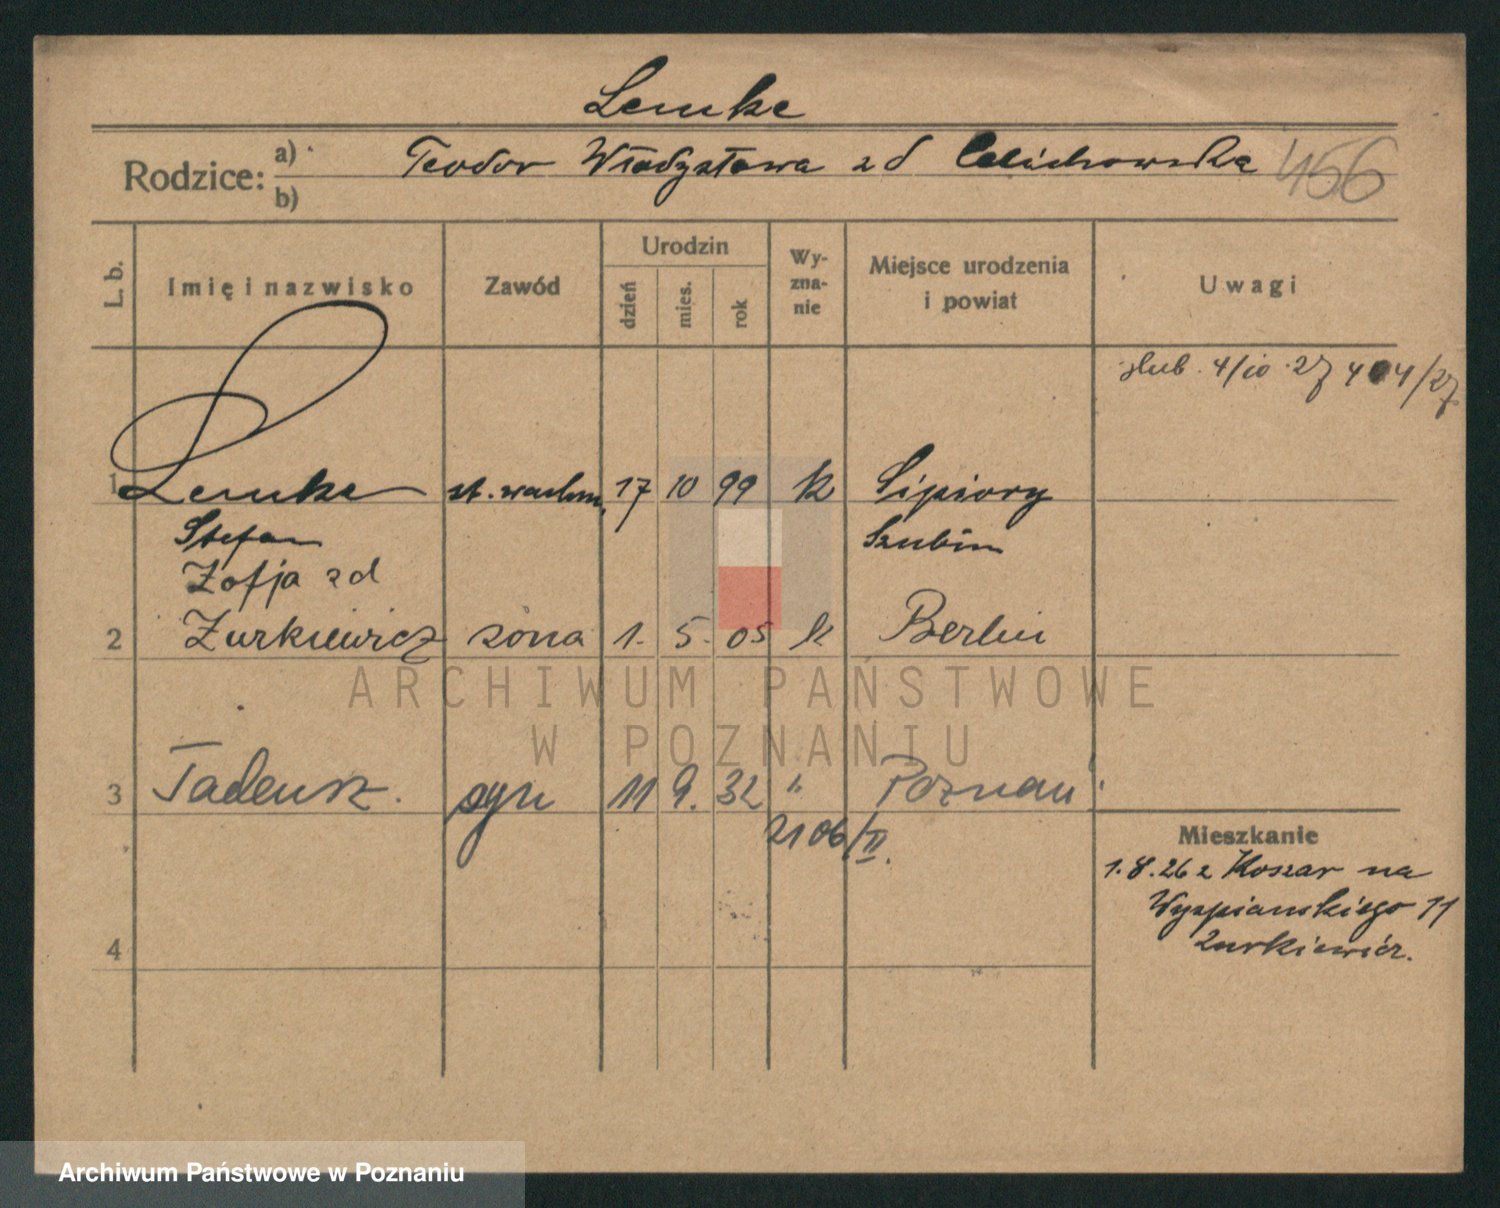 Lemke
Rodzice: a) b) Teodor Władysława z d Celichowska 456
L. b. Imię i nazwisko Zawód Urodzin dzień mies. rok Wyznanie Miejsce urodzenia i powiat Uwagi
ślub. 4/10 27 404/27
1 Lemke st. wachm. 17 10 99 k Lipiory
Stefan Szubin
Zofja z d
2 Żurkiewicz żona 1. 5. 05 k Berlin
3 Tadeusz. syn 11 9. 32 " Poznań
2106/II.
Mieszkanie
1.8.26 z Koszar na
Wyspiańskiego 11
Żurkiewicz.
4
ARCHIWUM PAŃSTWOWE
W POZNANIU
Archiwum Państwowe w Poznaniu